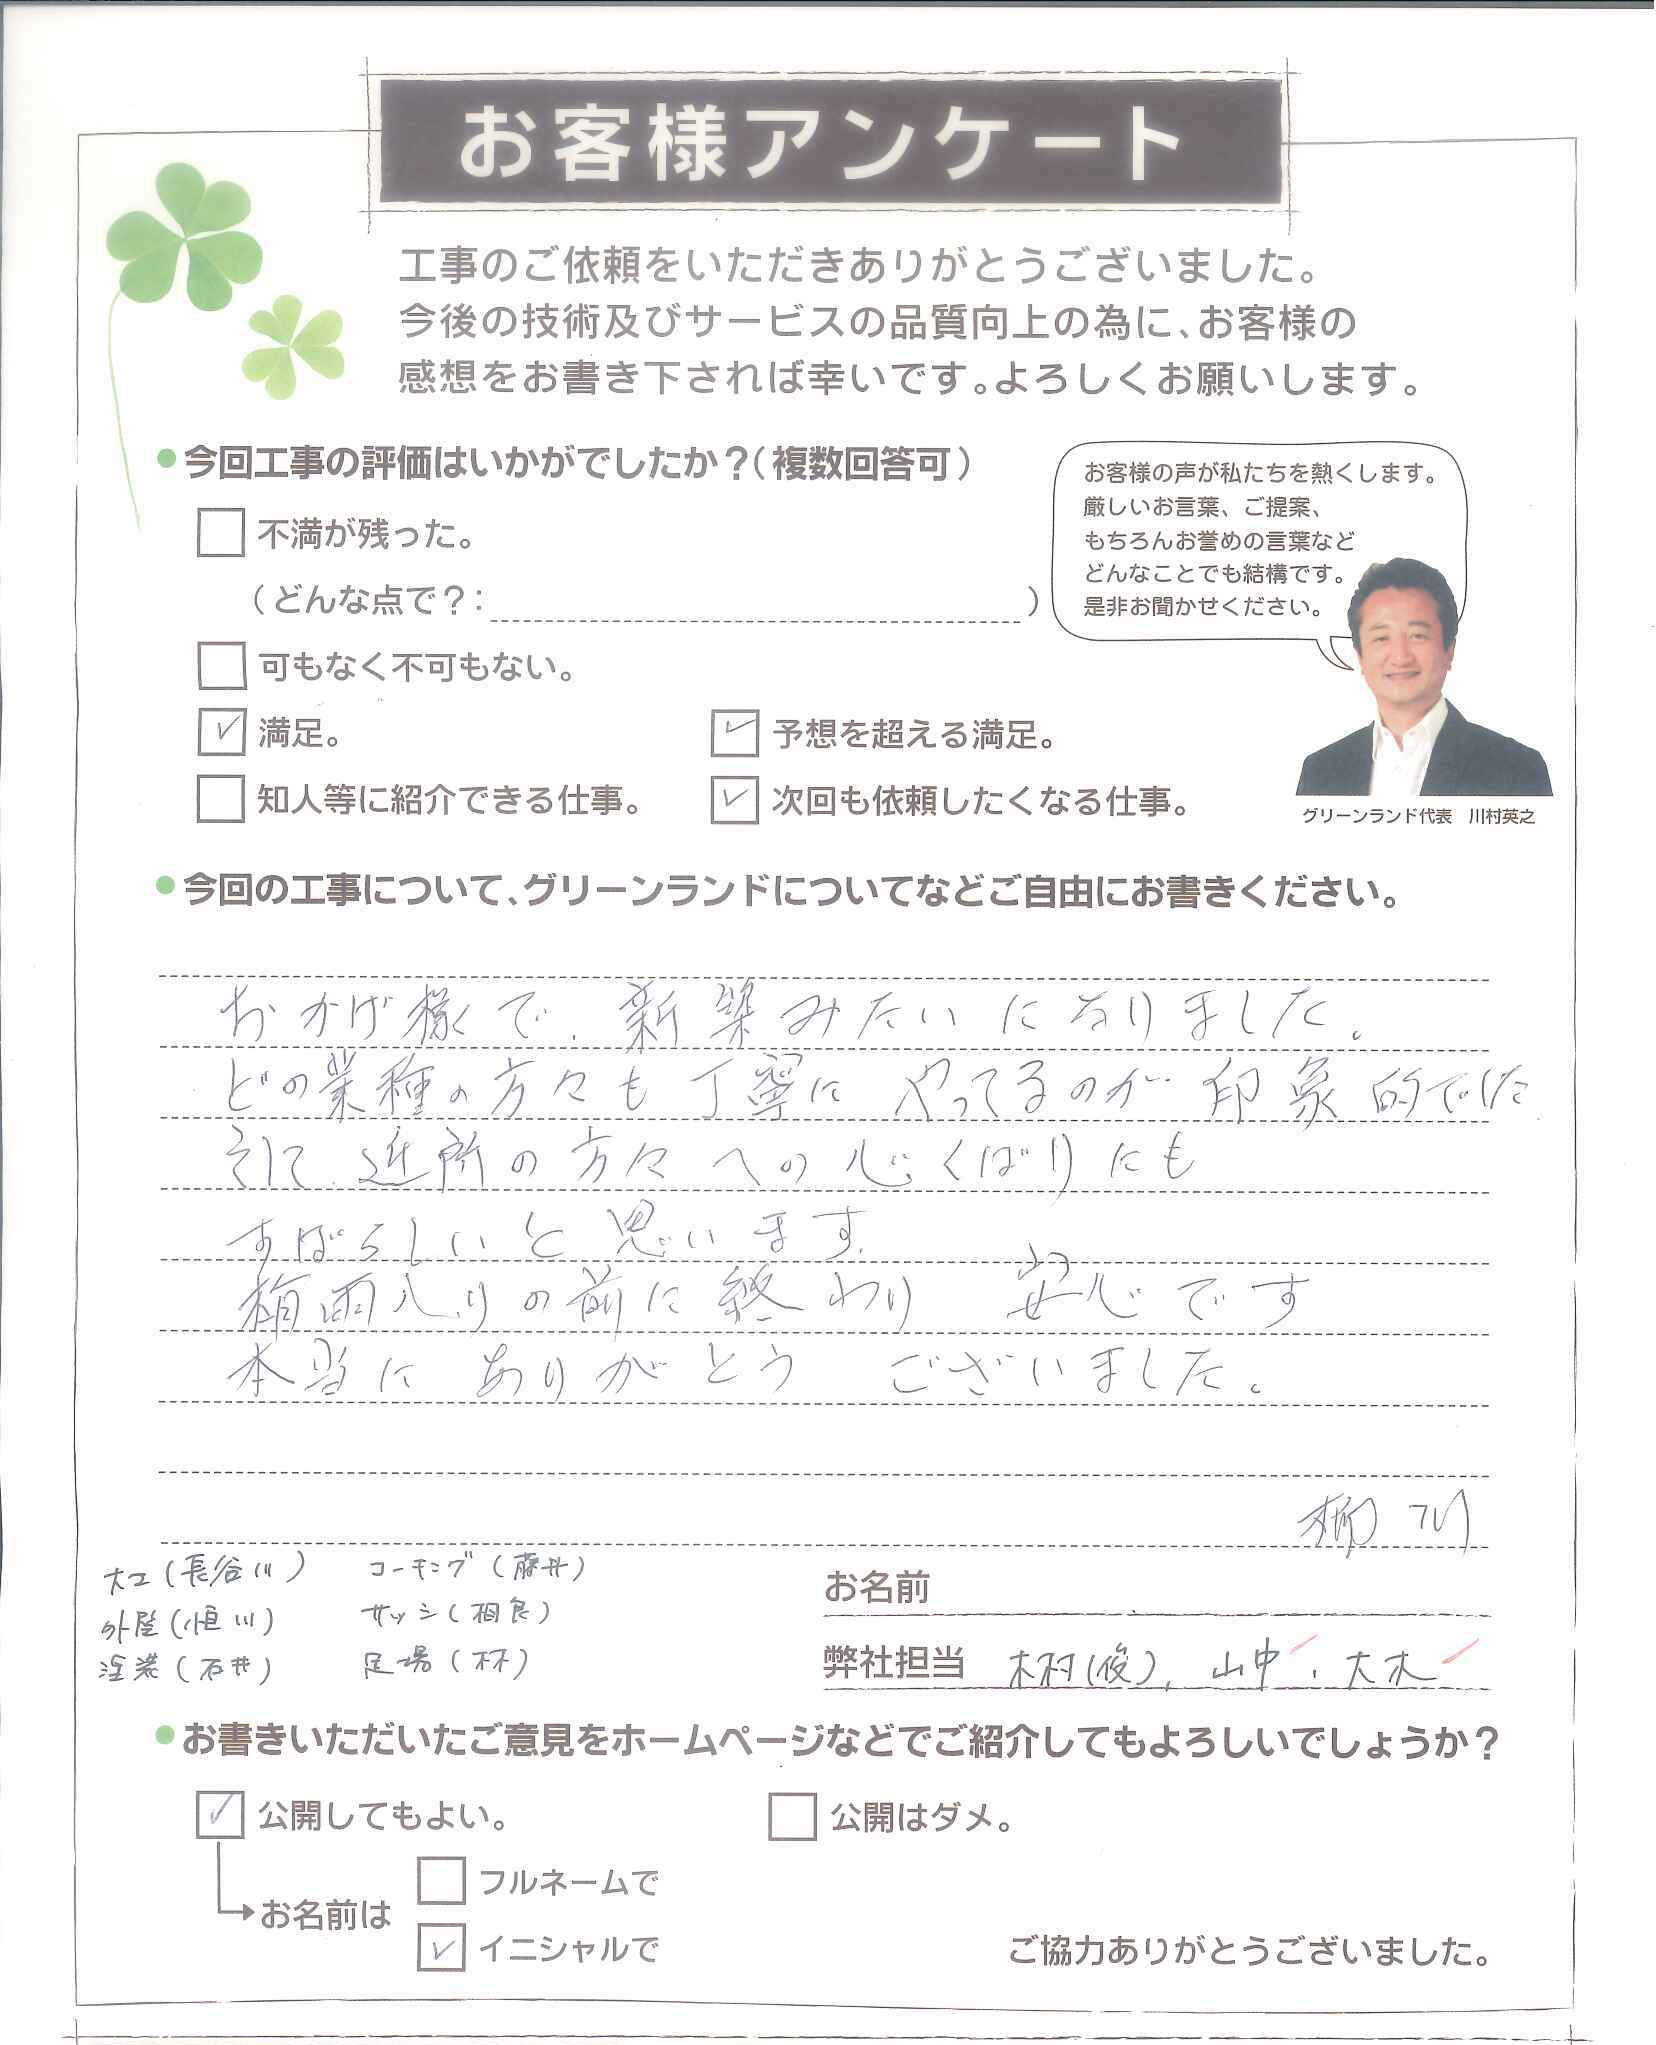 お客様アンケート
工事のご依頼をいただきありがとうございました。
今後の技術及びサービスの品質向上の為に、お客様の
感想をお書き下されば幸いです。よろしくお願いします。
今回工事の評価はいかがでしたか？(複数回答可)
お客様の声が私たちを熱くします。
厳しいお言葉、ご提案、
もちろんお誉めの言葉など
どんなことでも結構です。
是非お聞かせください。
グリーンランド代表 川村英之
不満が残った。
(どんな点で？: )
可もなく不可もない。
満足。 予想を超える満足。
知人等に紹介できる仕事。 次回も依頼したくなる仕事。
今回の工事について、グリーンランドについてなどご自由にお書きください。
おかげ様で、新築みたいになりました。
どの業種の方々も丁寧にやってるのが印象的でした
そして近所の方々への心くばりにも
すばらしいと思います。
梅雨入りの前に終わり 安心です
本当にありがとうございました。
柳川
大工(長谷川) コーキング(藤井)
外壁(恒川) サッシ(相良)
塗装(石井) 足場(林)
お名前
弊社担当 木村(俊)、山中、大木
お書きいただいたご意見をホームページなどでご紹介してもよろしいでしょうか？
公開してもよい。 公開はダメ。
お名前は
フルネームで
イニシャルで
ご協力ありがとうございました。